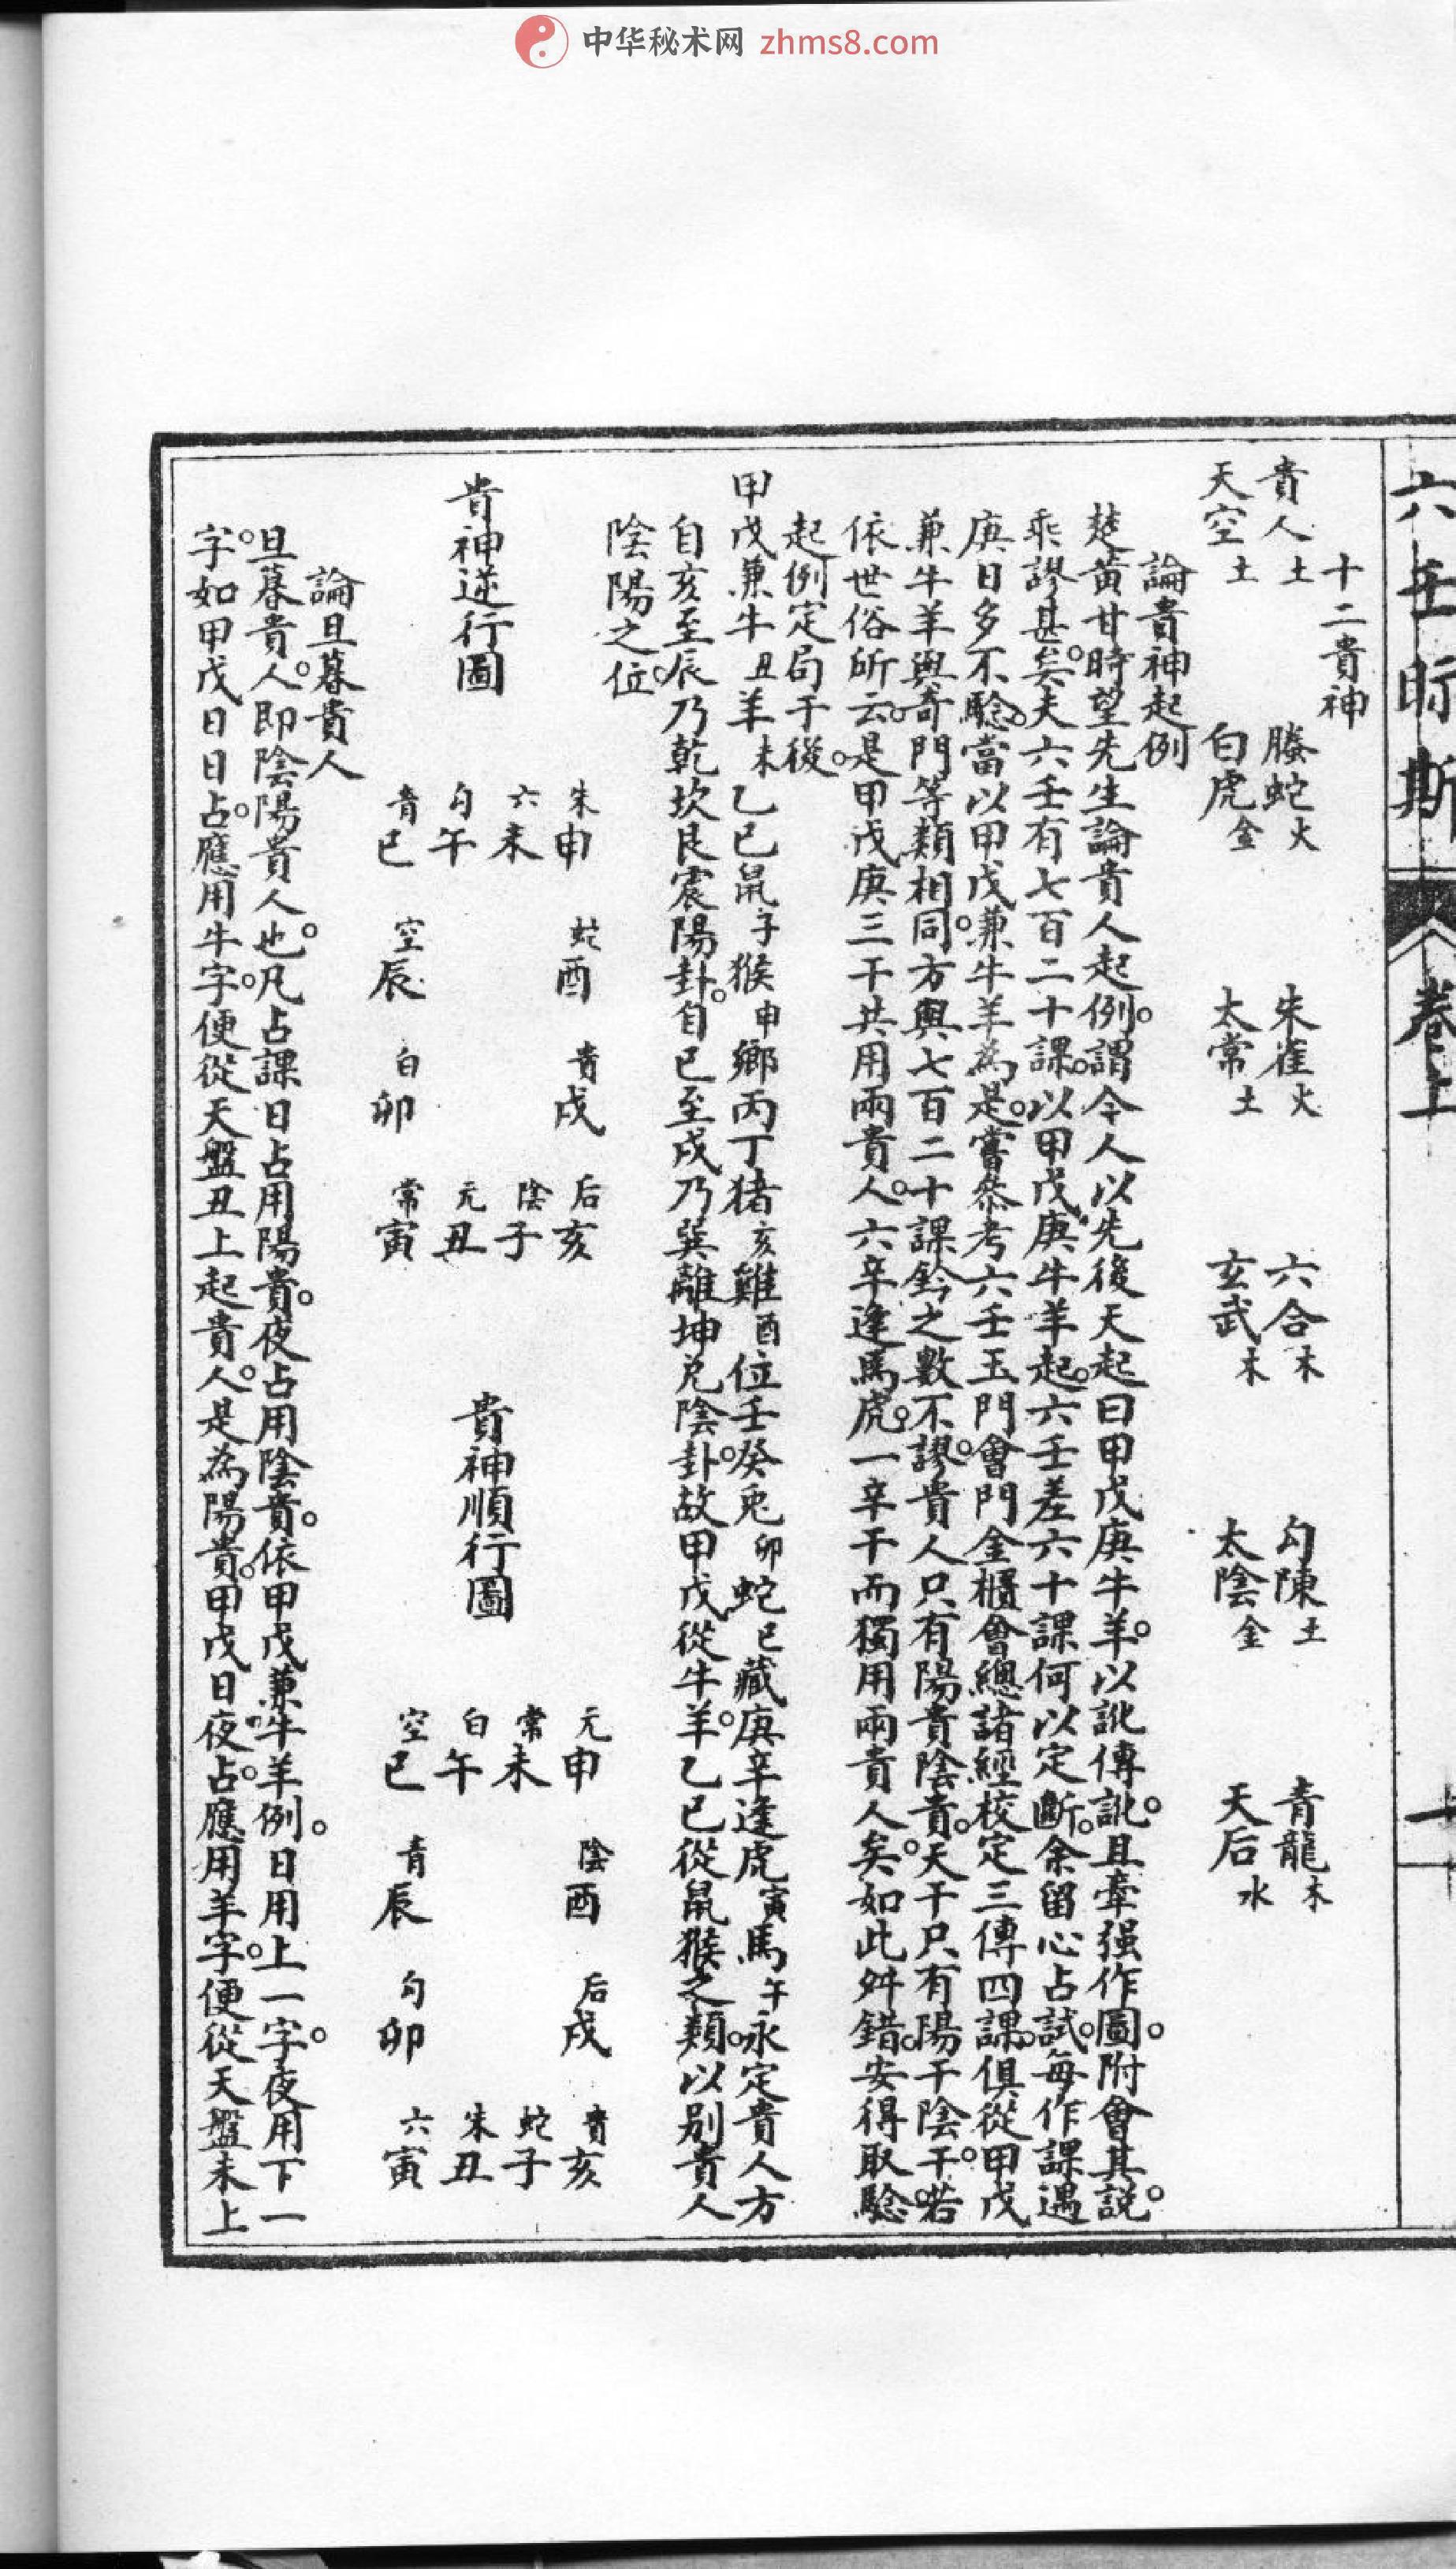 中华秘术网 zhms8.com
六壬眎斯
卷上
十二貴神
貴人土 螣蛇火 朱雀火 六合木 勾陳土 青龍木
天空土 白虎金 太常土 玄武木 太陰金 天后水
論貴神起例
楚黃甘時望先生論貴人起例。謂今人以先後天起曰甲戊庚牛羊。以訛傳訛。且牽强作圖。附會其説。
乖謬甚矣。夫六壬有七百二十課。以甲戊庚牛羊起。六壬差六十課何以定斷。余留心占試。每作課遇
庚日多不騐。當以甲戊兼牛羊為是。嘗叅考六壬玉門會門金櫃會總諸經校定三傳四課。俱從甲戊
兼牛羊與奇門等類相同。方與七百二十課鈐之數不謬。貴人只有陽貴陰貴。天干只有陽干陰干。若
依世俗所云。是甲戊庚三干共用兩貴人。六辛逢馬虎。一辛干而獨用兩貴人矣。如此舛錯。安得取騐
起例定局于後。
甲戊兼牛丑羊未乙己鼠子猴申鄉丙丁猪亥雞酉位壬癸兎卯蛇巳藏庚辛逢虎寅馬午永定貴人方
自亥至辰乃乾坎艮震陽卦。自巳至戌乃巽離坤兌陰卦。故甲戊從牛羊。乙己從鼠猴之類。以别貴人
陰陽之位。
貴神逆行圖
朱申 蛇酉 貴戌 后亥
六未 陰子
勾午 元丑
青巳 空辰 白卯 常寅
貴神順行圖
元申 陰酉 后戌 貴亥
常未 蛇子
白午 朱丑
空巳 青辰 勾卯 六寅
論旦暮貴人
旦暮貴人。即陰陽貴人也。凡占課日占用陽貴。夜占用陰貴。依甲戊兼牛羊例。日用上一字。夜用下一
字。如甲戊日日占。應用牛字。便從天盤丑上起貴人。是為陽貴。甲戊日夜占。應用羊字。便從天盤未上